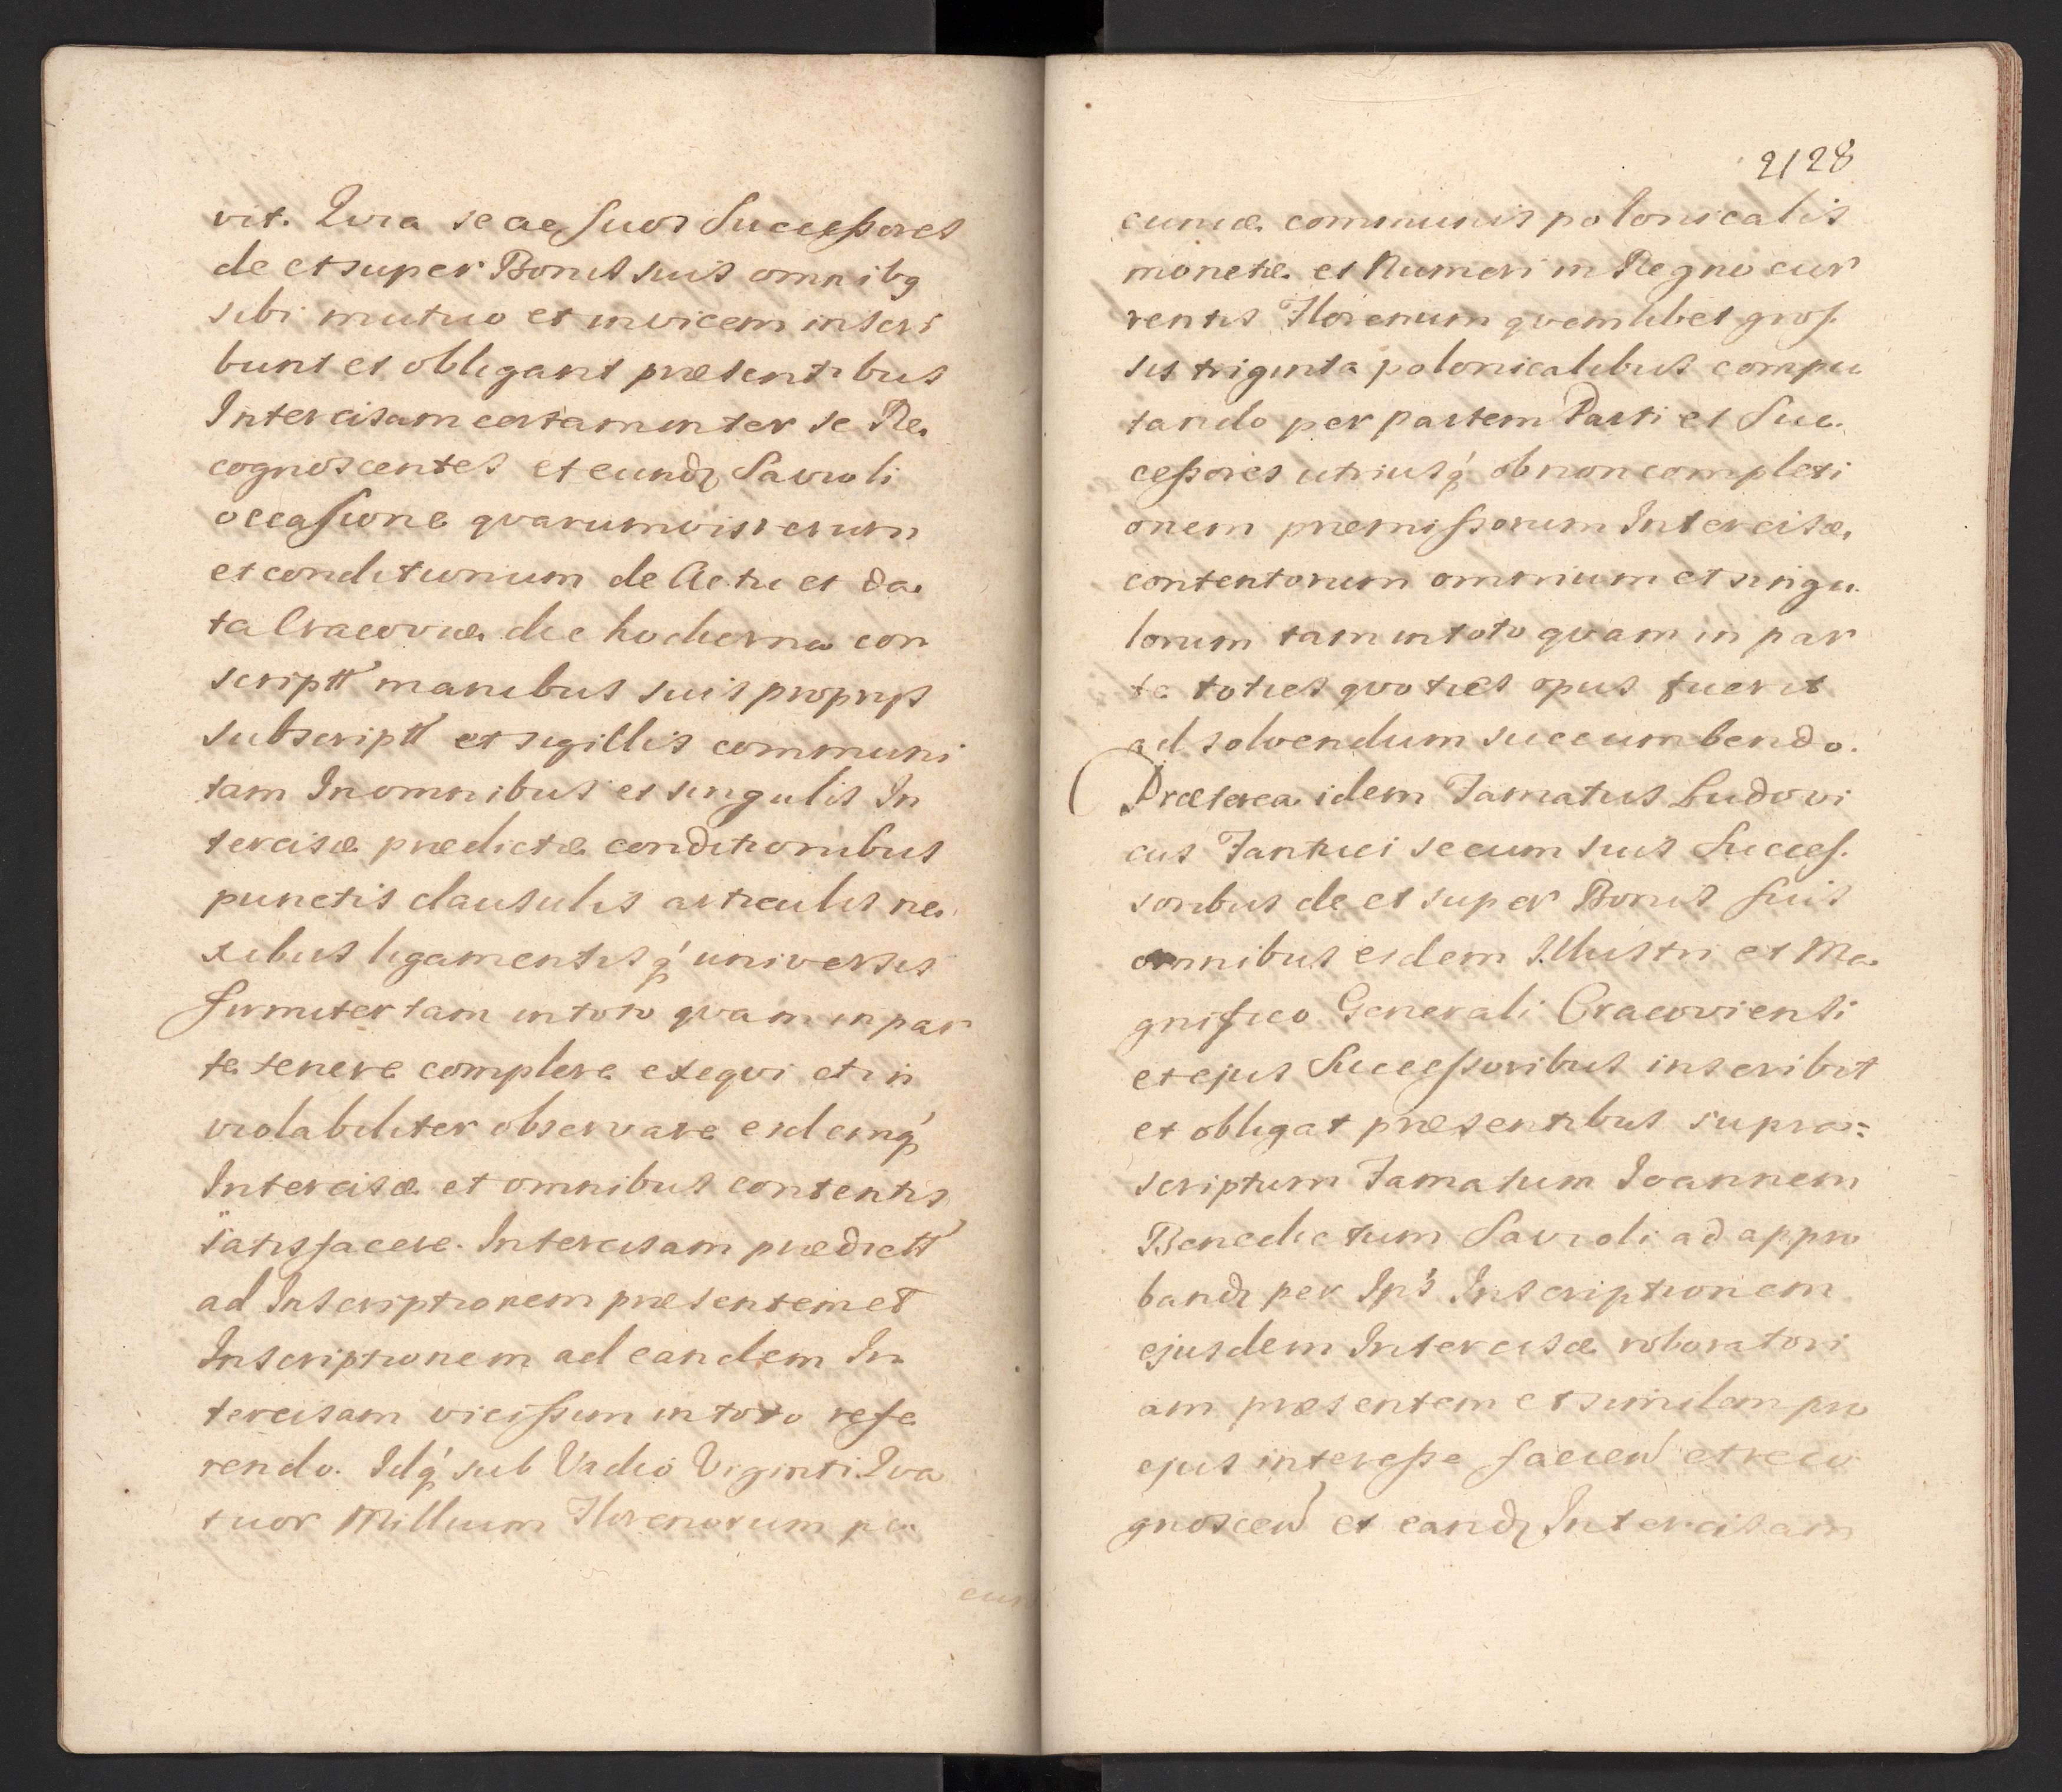 vit. Qvia se ac suos Successores
de et super Bonis suis omnibq
sibi mutuo et invicem inscri
bunt et obligant præsentibus
Intercisam certam inter se Re
cognoscentes et eundq Savioli
occasione qvarumvis rerum
et conditionum de Actu et Da
ta Cracoviæ die hodierna con
scriptt manibus suis proprijs
subscriptt et sigillis communi
tam In omnibus et singulis In
tercisæ prædictæ conditionibus
punctis clausulis articulis ne
xibus ligamentisq́ universis
firmiter tam in toto qvam in par
te tenere complere exeqvi et in
violabiliter observare eidemq́
Intercisæ et omnibus contentis
satisfacere. Intercisam prædictt
ad Inscriptionem præsentem et
Inscriptionem ad eandem In
tercisam vicissim in toto refe
rendo. Idq́ sub Vadio Viginti Qva
tuor Millium Florenorum pe
cun
2128
cuniæ communis polonicalis
monetæ et Numeri in Regno cur
rentis Florenum qvemlibet gros
sis triginta polonicalibus compu
tando per partem Parti et Suc
cessores utriusq́ ob non completi
onem præmissorum Intercisæ
contentorum omnium et singu
lorum tam in toto qvam in par
te toties qvoties opus fuerit
ad solvendum succumbendo.
Præterea idem Famatus Ludovi
cus Fantuci se cum suis Succes
soribus de et super Bonis suis
omnibus eidem Illustri et Ma
gnifico Generali Cracoviensi
et ejus Successoribus inscribit
et obligat præsentibus supra=
scriptum Famatum Ioannem
Benedictum Savioli ad appro
bandq per Ip's Inscriptionem
ejusdem Intercisæ roboratori
am præsentem et similem pro
ejus interesse facien et reco
gnoscen et eandq Intercisam